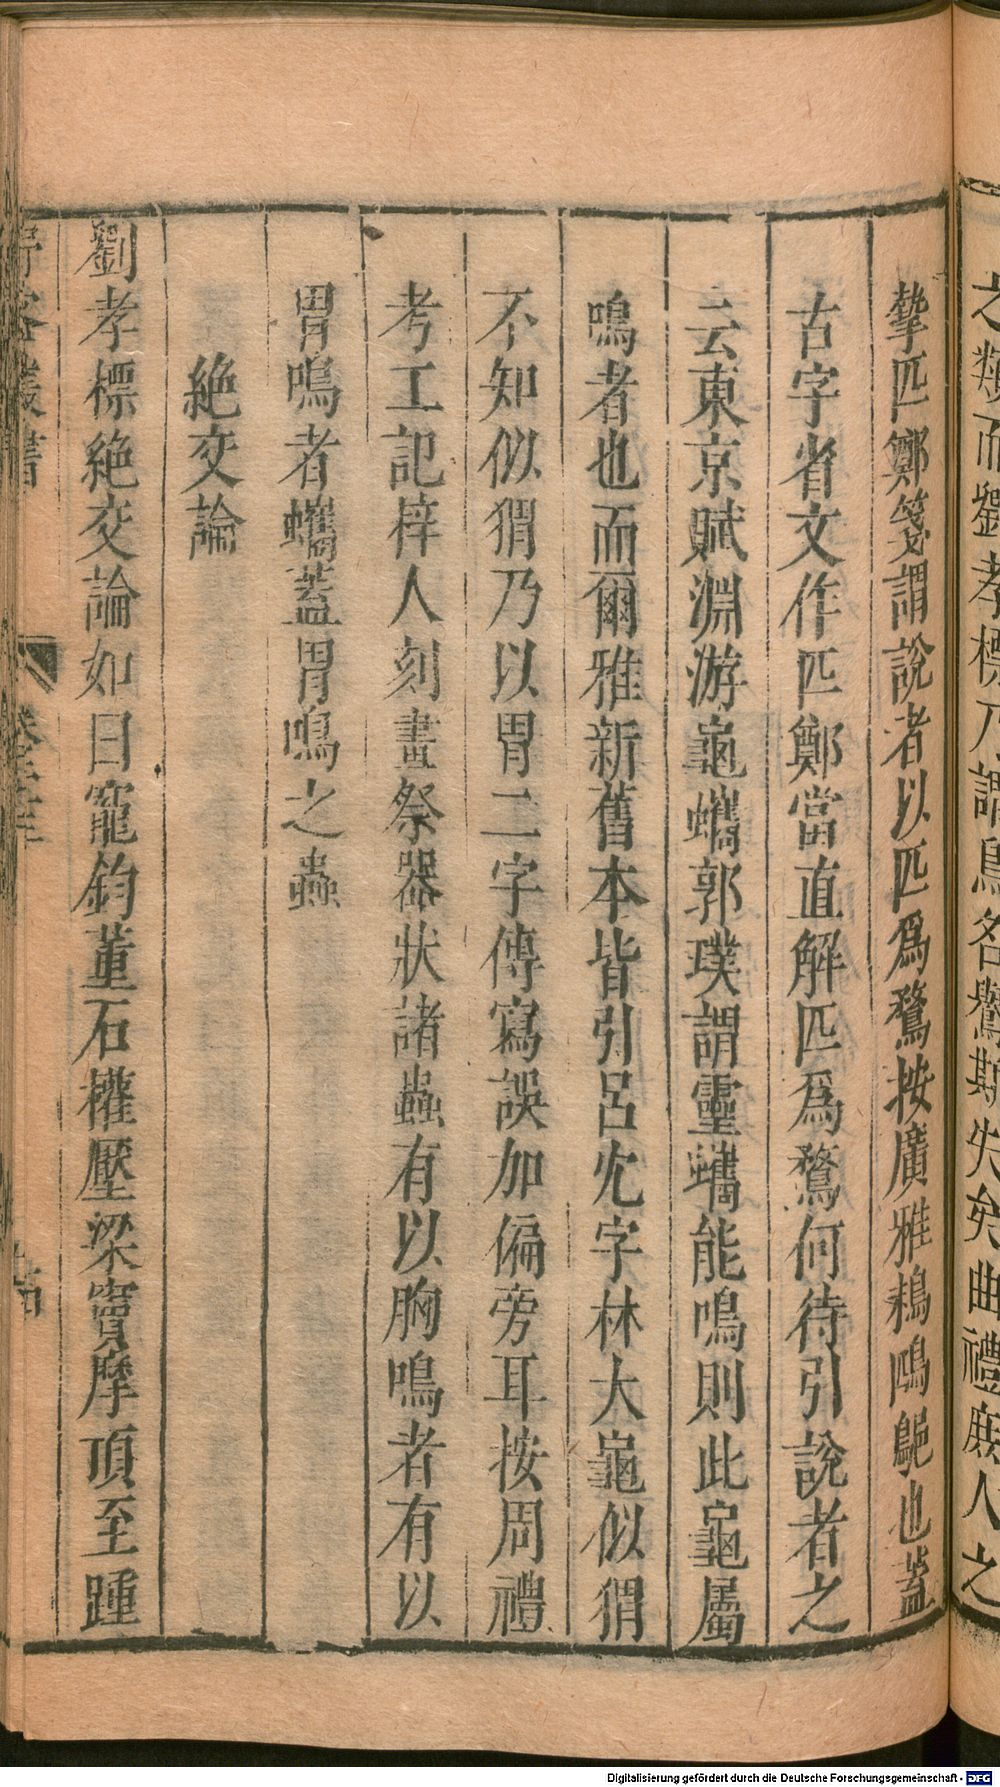 之類而劉孝標乃謂鳥名鸒斯失矣曲禮庶人之
摯匹鄭箋謂說者以匹爲鶩按廣雅鶩鴄也蓋
古字省文作匹鄭當直解匹爲鶩何待引說者之
云東京賦淵游龜蠵郭璞謂靈蠵能鳴則此龜屬
鳴者也而爾雅新舊本皆引呂忱字林大龜似猬
不知似猬乃以胃二字傳寫誤加偏旁耳按周禮
考工記梓人刻畫祭器狀諸蟲有以胸鳴者有以
胃鳴者蠵蓋胃鳴之蟲
絶交論
劉孝標絶交論如曰寵鈞董石權壓梁竇摩頂至踵
Digitalisierung gefördert durch die Deutsche Forschungsgemeinschaft - DFG